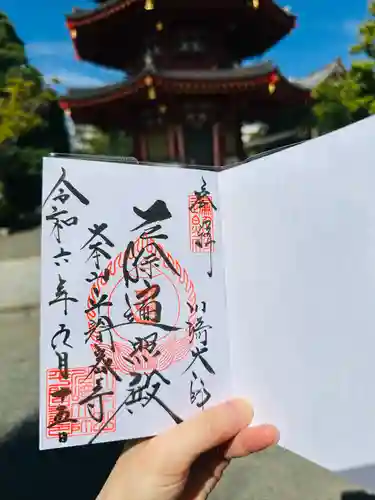 奉拝 川崎大師
厄除遍照殿
大本山平間寺
令和六年九月十五日